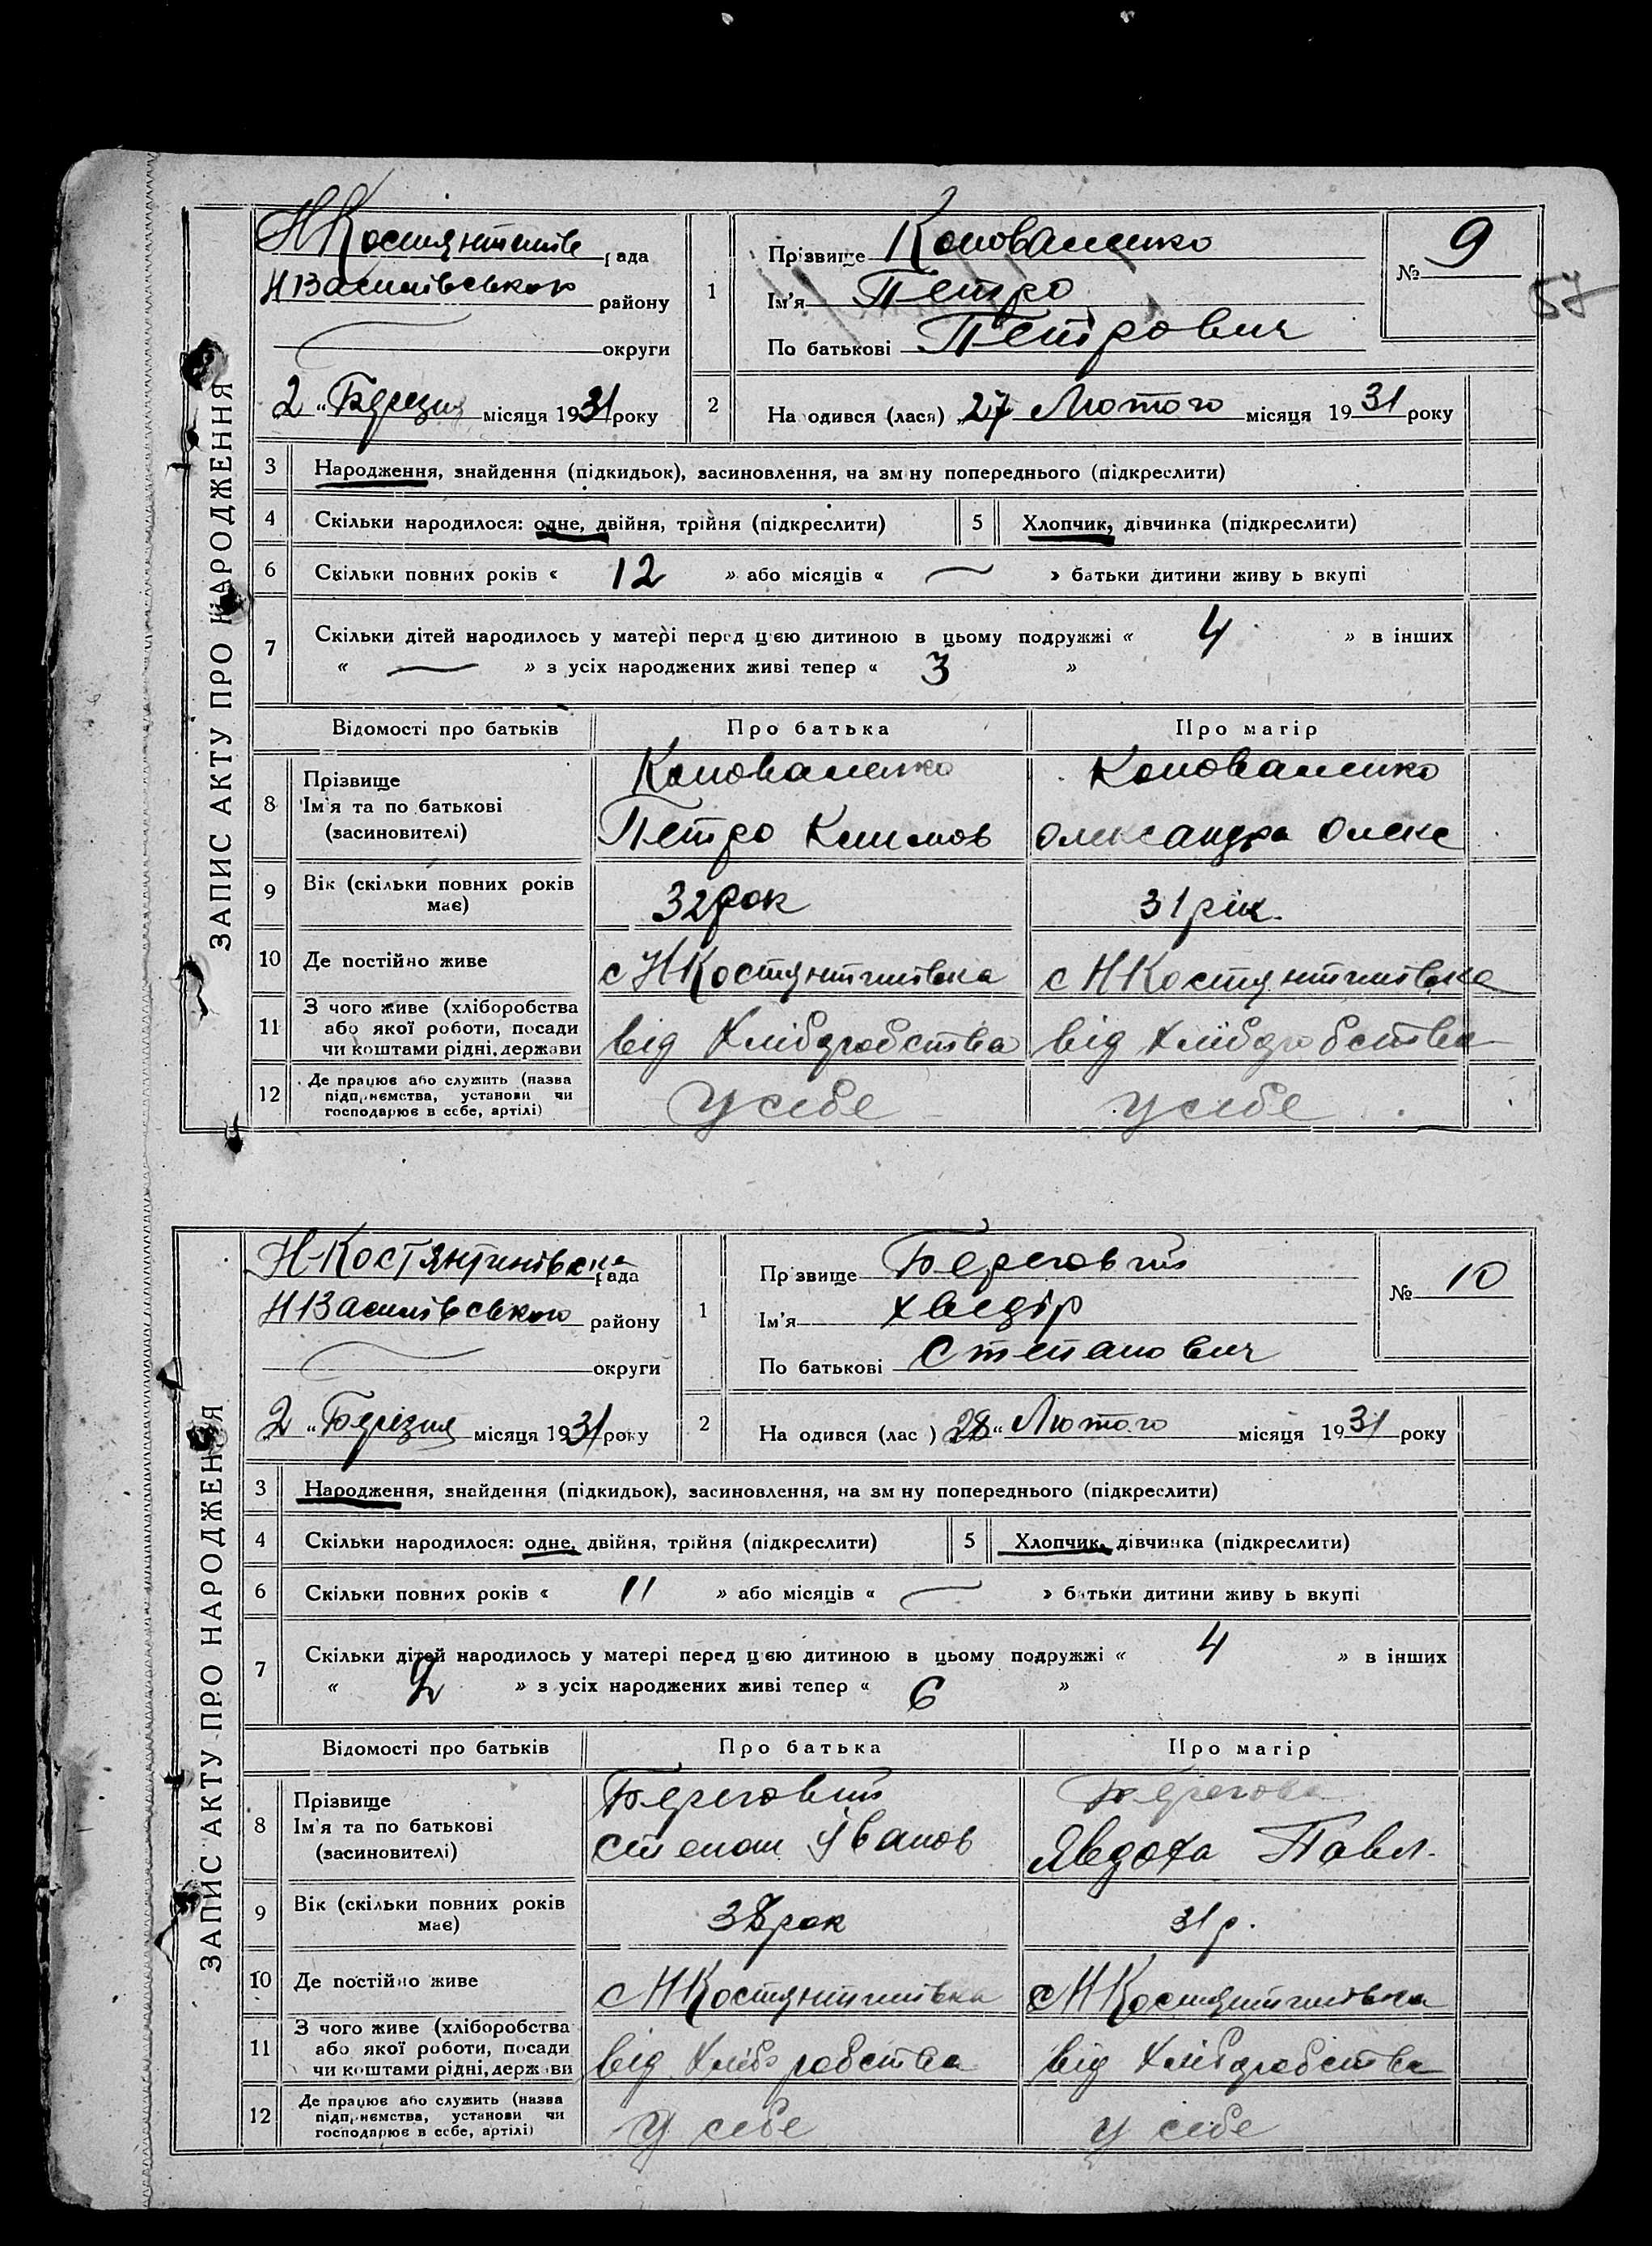 ЗАПИС АКТУ ПРО НАРОДЖЕННЯ
Н Костянтинів рада
Н Василівськог району
округи
2 „ Березня місяця 1931 року
1
Прізвище Коноваленко
Ім'я Петро
По батькові Петрович
№ 9
57
2
На одився (лася) „27 Лютого місяця 1931 року
3 Народження, знайдення (підкидьок), засиновлення, на зм ну попереднього (підкреслити)
4 Скільки народилося: одне, двійня, трійня (підкреслити) 5 Хлопчик, дівчинка (підкреслити)
6 Скільки повних років « 12 » або місяців « — » батьки дитини живу ь вкупі
7 Скільки дітей народилось у матері перед цією дитиною в цьому подружжі « 4 » в інших
« — » з усіх народжених живі тепер « 3 »
Відомості про батьків Про батька Про матір
8 Прізвище
Ім'я та по батькові
(засиновителі)
Коноваленко
Петро Климов
Коноваленко
Олександра Олекс
9 Вік (скільки повних років
має)
32 рок
31 рік.
10 Де постійно живе с НКостянтинівка с НКостянтинівка
11 З чого живе (хліборобства
або якої роботи, посади
чи коштами рідні, держави
від хліборобства від хліборобства
12 Де працює або служить (назва
підприємства, установи чи
господарює в себе, артілі)
у себе у себе
ЗАПИС АКТУ ПРО НАРОДЖЕННЯ
Н-Костянтинівска рада
Н Василівського району
округи
2 „ Березня місяця 1931 року
1
Пр звище Береговий
Ім'я Хведір
По батькові Степанович
№ 10
2
На одився (лас ) 28 „ Лютого місяця 1931 року
3 Народження, знайдення (підкидьок), засиновлення, на зм ну попереднього (підкреслити)
4 Скільки народилося: одне, двійня, трійня (підкреслити) 5 Хлопчик, дівчинка (підкреслити)
6 Скільки повних років « 11 » або місяців « — » батьки дитини живу ь вкупі
7 Скільки дітей народилось у матері перед цією дитиною в цьому подружжі « 4 » в інших
« 2 » з усіх народжених живі тепер « 6 »
Відомості про батьків Про батька Про матір
8 Прізвище
Ім'я та по батькові
(засиновителі)
Береговий
Степан Іванов
Берегова
Явдоха Павл.
9 Вік (скільки повних років
має)
38 рок
31 р.
10 Де постійно живе с НКостянтинівка с НКостянтинівка
11 З чого живе (хліборобства
або якої роботи, посади
чи коштами рідні, держави
від хліборобства від хліборобства
12 Де працює або служить (назва
підприємства, установи чи
господарює в себе, артілі)
у себе у себе